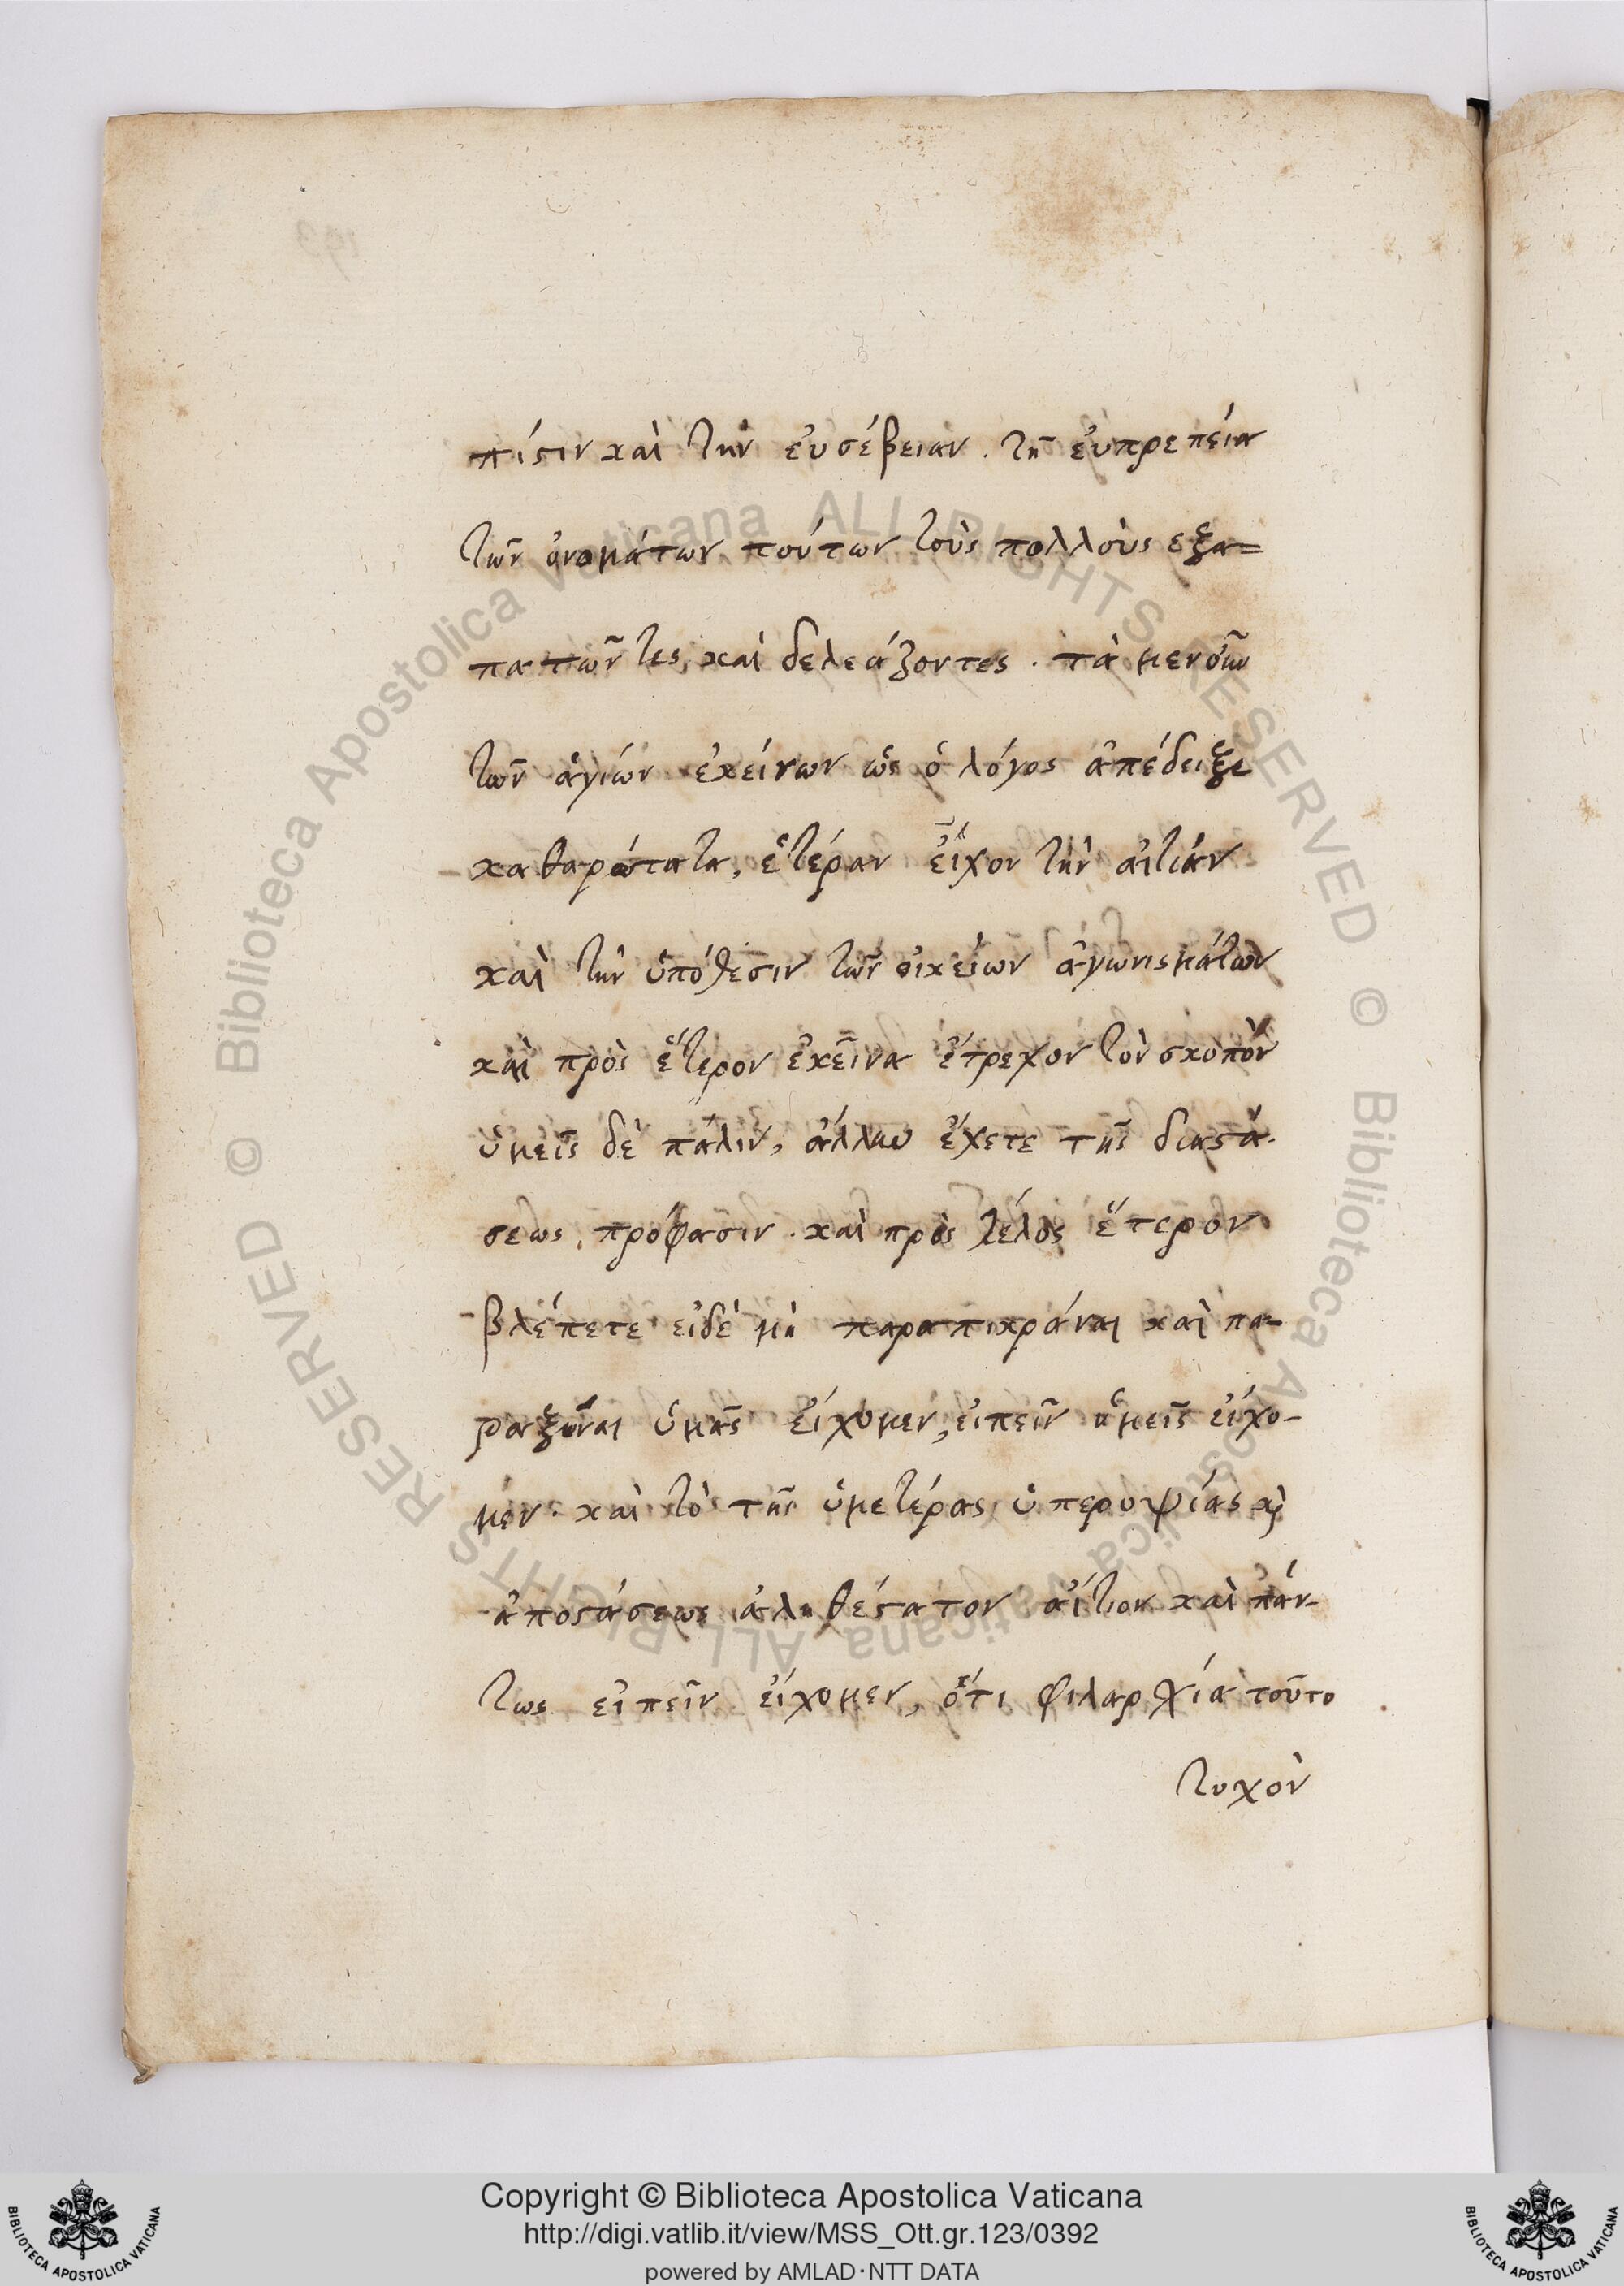 πίστιν καὶ τὴν ἐυσέβειαν. τῆ ἐυπρεπεία
τῶν ὀνομάτων τούτων τοὺς πολλοὺς εξα=
πατῶντες καὶ δελεάζοντες. τὰ μενοῦν
τῶν ἁγιών ἐκείνων ὡς ὁ λόγος ἀπέδειξε
καθαρώτατα, ἑτέραν εἶχον τὴν ἀιτιάν
καὶ τὴν ὑπόθεσιν τῶν οἰκείων ἀγωνισμάτων
καὶ πρὸς ἕτερον ἐκεῖνα ἔτρεχον τὸν σκοπὸν
ὑμεῖς δὲ πάλιν, ἄλλην ἔχετε τῆς διαστά-
σεως πρόφασιν. καὶ πρὸς τέλος ἕτερον
βλέπετε ειδὲ μὴ παραπικράναι καὶ πα-
ροξῦναι ὑμᾶς εἴχομεν, ειπεῖν ἡμεῖς εἴχο-
μεν. καὶ τὸ τῆς ὑμετέρας ὑπεροψίας κὶ
ἀποστάσεως ἀληθέστατον ἄιτιον καὶ πάν-
τως ειπεῖν εἴχομεν, ὅτι φιλαρχία τοῦτο
τυχὸν
Copyright © Biblioteca Apostolica Vaticana
http://digi.vatlib.it/view/MSS_Ott.gr.123/0392
powered by AMLAD·NTT DATA
BIBLIOTECA APOSTOLICA VATICANA
BIBLIOTECA APOSTOLICA VATICANA
© Biblioteca Apostolica Vaticana ALL RIGHTS RESERVED
© Biblioteca Apostolica Vaticana ALL RIGHTS RESERVED